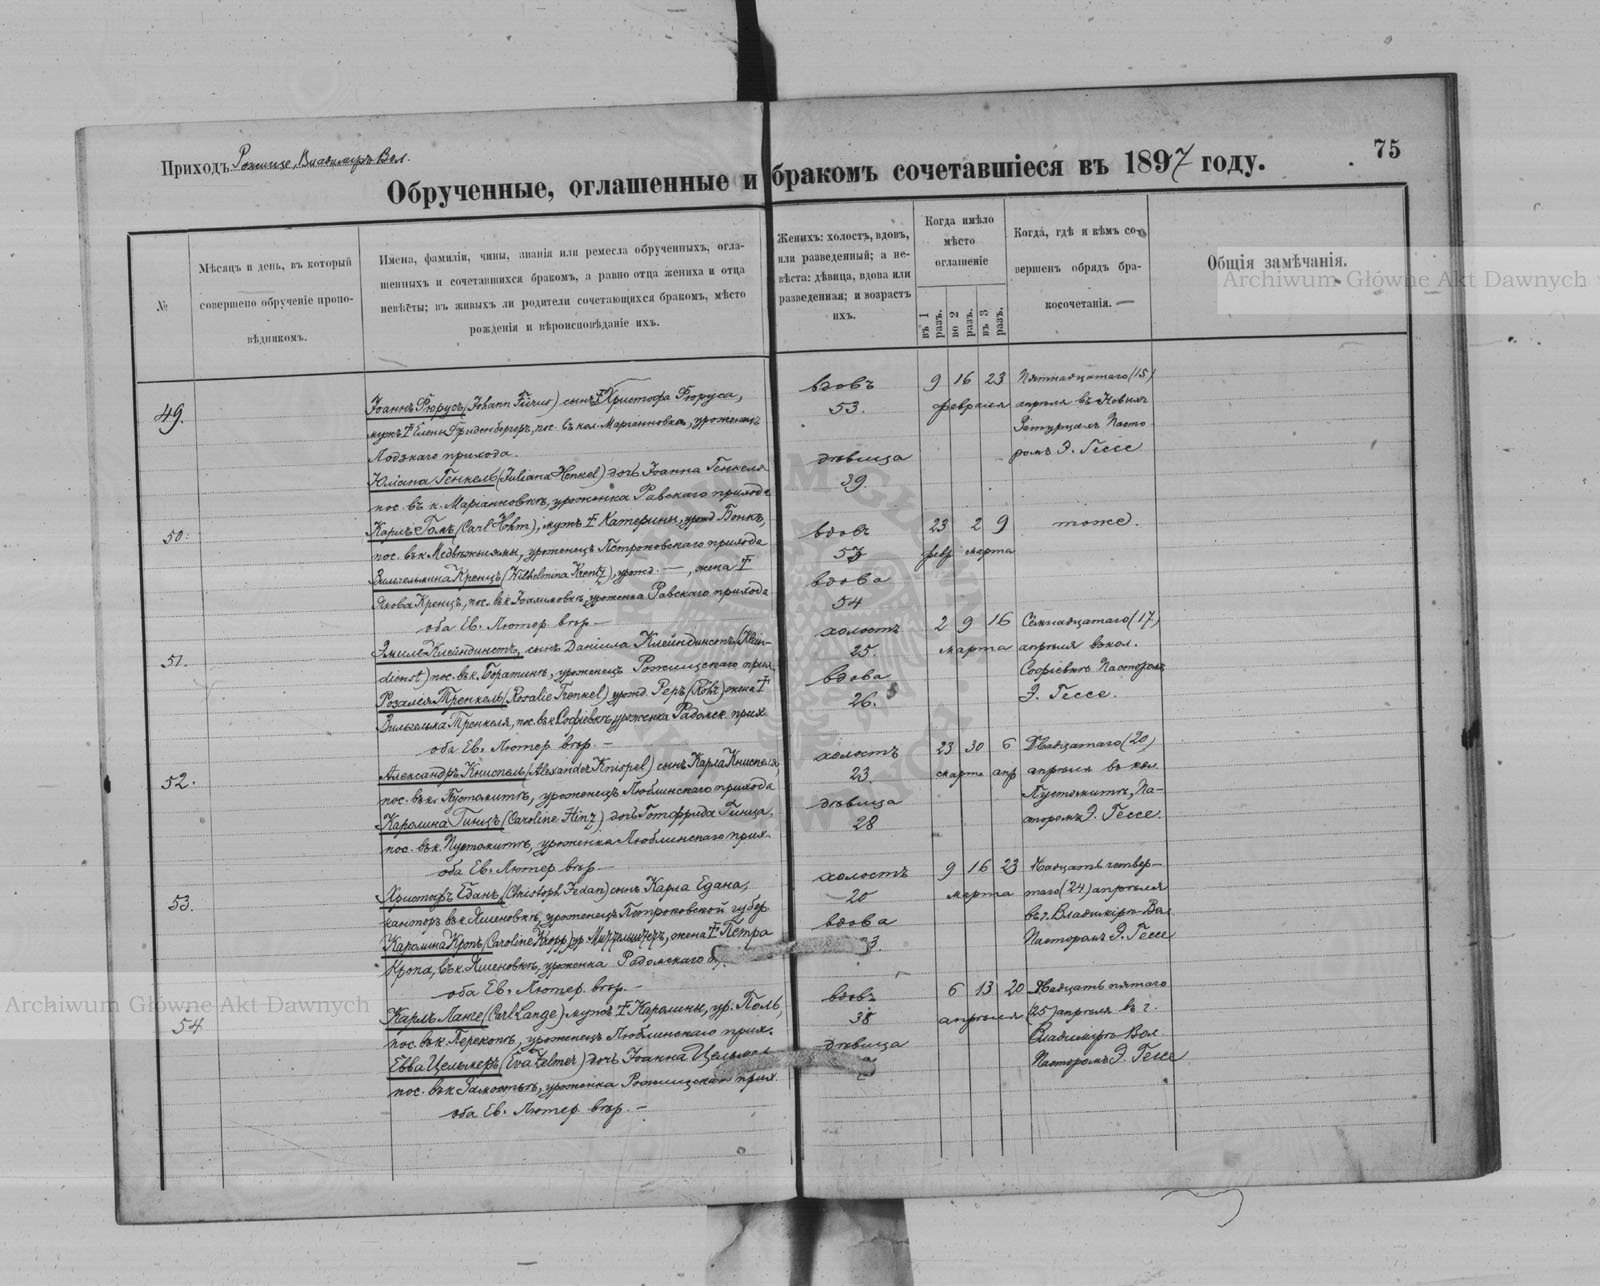 Приходъ Рожище, Владимиръ Вол.
75
Обрученные, оглашенные и бракомъ сочетавшіеся въ 1897 году.
№
Мѣсяцъ и день, въ который совершено обрученіе проповѣдникомъ.
Имена, фамиліи, чины, званія или ремесла обрученныхъ, оглашенныхъ и сочетавшихся бракомъ, а равно отца жениха и отца невѣсты; въ живыхъ ли родители сочетающихся бракомъ, мѣсто рожденія и вѣроисповѣданіе ихъ.
Женихъ: холостъ, вдовъ, или разведенный; а невѣста: дѣвица, вдова или разведенная; и возрастъ ихъ.
Когда имѣло мѣсто оглашеніе
въ 1 разъ.
во 2 разъ.
въ 3 разъ.
Когда, гдѣ и кѣмъ совершенъ обрядъ бракосочетанія. —
Общія замѣчанія.
Archiwum Główne Akt Dawnych
49.
Іоаннъ Фюрусъ (Johann Fürus) сынъ † Христофа Фюруса,
мужъ † Елены Фриденбергеръ, пос. въ кол. Маріановка, уроженецъ
Лодзкаго прихода.
Юліана Генкель (Juliana Henkel) дочь Іоанна Генкеля
пос. въ к. Маріановкѣ, уроженка Равскаго прихода
вдовъ
53.
дѣвица
39.
9 16 23
февраля
Пятнадцатаго (15)
апрѣля въ Новыхъ
Затурцахъ Пасто-
ромъ Э. Гессе
50.
Карлъ Гомъ (Carl Hohm), мужъ † Катерины, урожд. Бонкъ,
пос. въ к. Медвѣжьиямы, уроженецъ Петроковскаго прихода
Вильгельмина Кренцъ (Wilhelmina Krentz), урожд. —, жена †
Якова Кренцъ, пос. въ к. Іоахимовкѣ, уроженка Равскаго прихода
оба Ев. Лютер. вѣр. —
вдовъ
57
вдова
54
23 2 9
фев марта
тоже.
51.
Эмиль Клейндинстъ, сынъ Даніила Клейндинстъ (Klein-
dienst) пос. въ к. Боратинъ, уроженецъ Рожищскаго прих.
Розалія Тренкель (Rosalie Trenkel) урожд. Реръ (Röhr) жена †
Вильгельма Тренкеля, пос. въ к. Софіевкѣ, уроженка Радомск. прих.
оба Ев. Лютер. вѣр. —
холостъ
25.
вдова
26.
2 9 16
марта
Семнадцатаго (17)
апрѣля въ кол.
Софіевкѣ Пасторомъ
Э. Гессе.
52.
Александръ Книспель (Alexander Knispel) сынъ Карла Книспеля,
пос. въ к. Пустомитѣ, уроженецъ Люблинскаго прихода
Каролина Гинцъ (Caroline Hinz) дочь Готфрида Гинца,
пос. въ к. Пустомитѣ, уроженка Люблинскаго прих.
оба Ев. Лютер. вѣр —
холостъ
23.
дѣвица
28
23 30 6
марта апр
Двадцатаго (20)
апрѣля въ кол.
Пустомитѣ, Па-
сторомъ Э. Гессе.
53.
Христофъ Еданъ (Christoph Jedan) сынъ Карла Едана,
канторъ въ к. Яшеновкѣ, уроженецъ Петроковской губер
Каролина Кропъ (Caroline Kropp) ур. жена † Петра
Кропа, въ к. Яшеновкѣ, уроженка Радомскаго
оба Ев. Лютер. вѣр. —
холостъ
20
вдова
9 16 23
марта
Двадцать четвер-
таго (24) апрѣля
въ г. Владимірѣ-Вол.
Пасторомъ Э. Гессе
54
Карлъ Ланге (Carl Lange) мужъ † Каролины, ур. Поль,
пос. въ к. Перекопѣ, уроженецъ Люблинскаго прих.
Евва Цельмеръ (Eva Zelmer) дочь Іоанна
пос. въ к. Замостьѣ, уроженка Рожищскаго прих.
оба Ев. Лютер. вѣр. —
вдовъ
38
дѣвица
6 13 20
апрѣля
Двадцать пятаго
(25) апрѣля въ г.
Владимірѣ Вол.
Пасторомъ Э. Гессе
Archiwum Główne Akt Dawnych